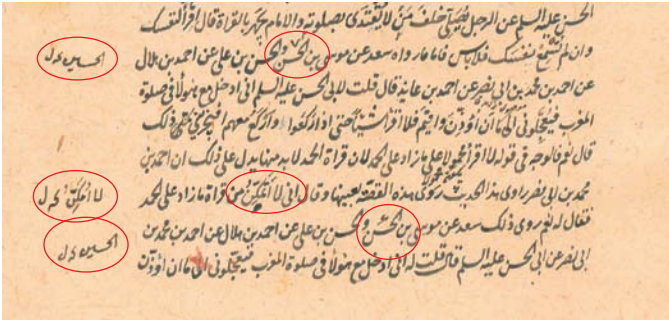 الحسن عليه السلم عن الرجل يصلى خلف من لا يقتدى بصلوته والامام يجهر بالقراة قال اقرا لنفسك
وان لم تسمع نفسك فلا باس فاما ما رواه سعد عن موسى بن الحسن والحسن بن على عن احمد بن هلال
الحسين كذا
عن احمد بن محمد بن ابى نصر عن احمد بن عايذ قال قلت لابى الحسن عليه السلم انى ادخل مع هولا فى صلوة
المغرب فيعجلونى الى ما ان اوذن واقيم فلا اقرا شيئا حتى اذا ركعوا واركع معهم افيجزى ذلك
قال نعم فالوجه فى قوله لا اقرا محمول على ما زاد على الحمد لان قراة الحمد لا بد منها يدل على ذلك ان احمد بن
محمد بن ابى نصر راوى هذا الحديث روى هذه القصة بعينها وقال انى لا اتمكن من قراة ما زاد على الحمد
فقال له نعم روى ذلك سعد عن موسى بن الحسن والحسن بن على عن احمد بن هلال عن احمد بن محمد بن
الحسين
ابى نصر عن ابى الحسن عليه السلم قال قلت له انى ادخل مع هولا فى صلوة المغرب فيعجلونى الى ما ان اوذن